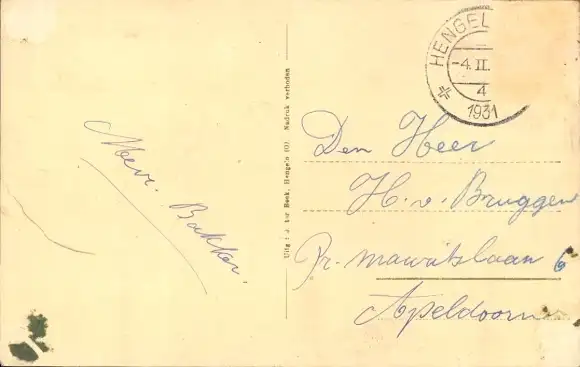 Mevr. Bakker.
Uitg: J. ter Beek, Hengelo (O). Nadruk verboden
HENGEL
-4.II.
4
1931
Den Heer
H. v. Bruggen
Pr. Mauritslaan 6
Apeldoorn